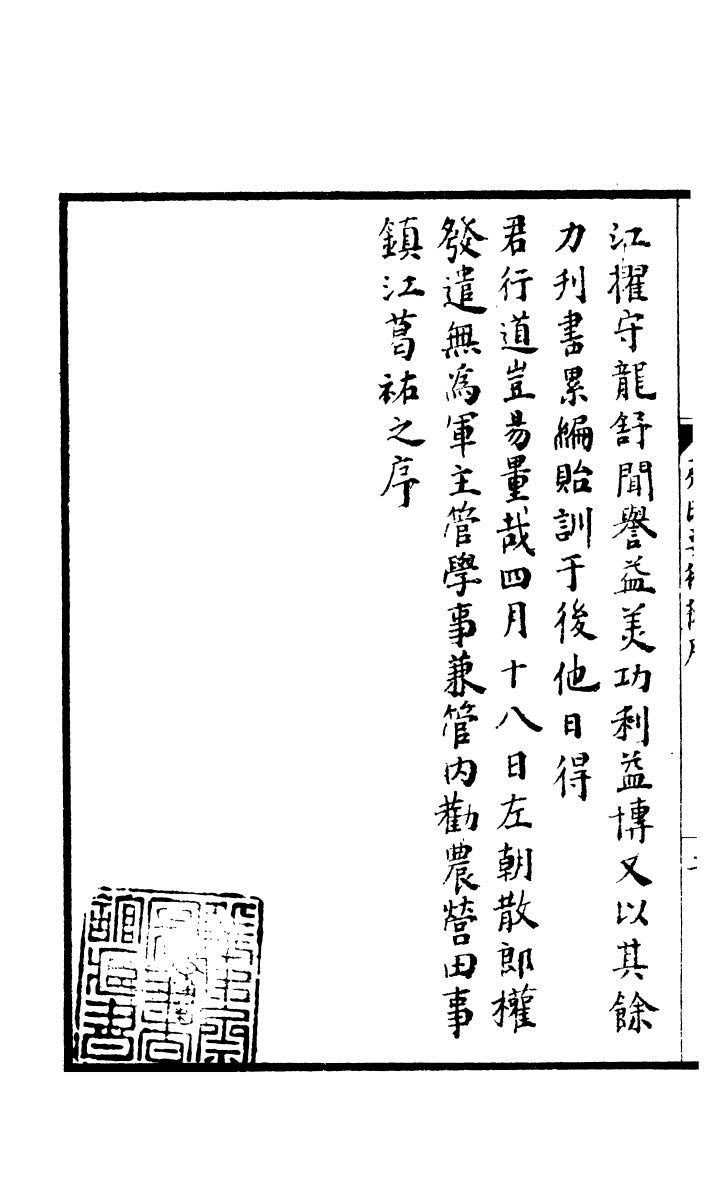 江擢守龍舒聞譽益美功利益博又以其餘
力刋書累編貽訓于後他日得
君行道豈易量哉四月十八日左朝散郎權
發遣無為軍主管學事兼管内勸農營田事
鎮江葛祐之序